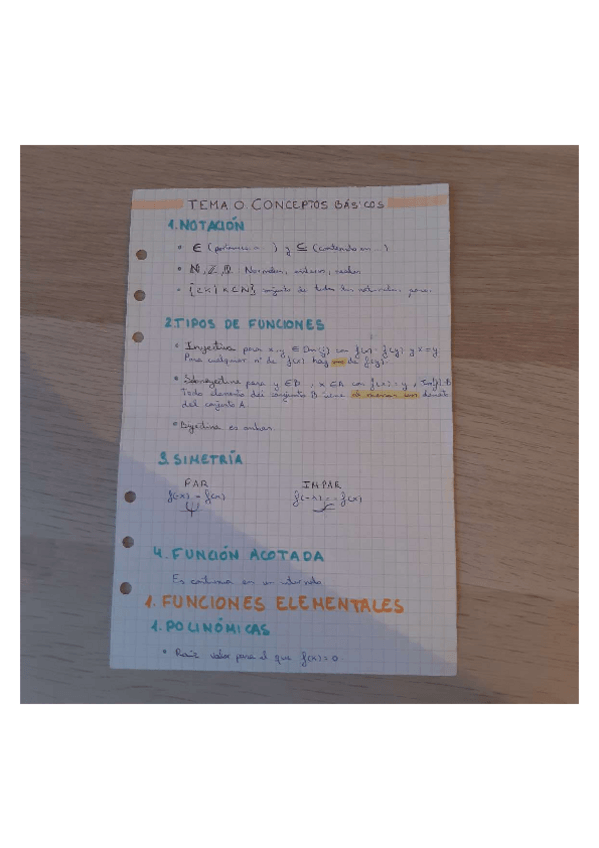 TEMA 0. CONCEPTOS BÁSICOS
1. NOTACIÓN
• ∈ (pertenece a...) y ⊆ (contenido en...)
• N, Z, Q. Naturales, enteros,
• {2x | x ∈ N} conjunto de todos los naturales pares.
2. TIPOS DE FUNCIONES
• Inyectiva para x, y ∈ Dom(f) con f(x) = f(y) y x = y.
Para cualquier nº de f(x) hay uno de f(y).
• Sobreyectiva para y ∈ B, x ∈ A con f(x) = y,
Todo elemento del conjunto B tiene al menos uno
del conjunto A.
• Biyectiva es ambas.
3. SIMETRÍA
PAR IMPAR
f(-x) = f(x) f(-x) = -f(x)
4. FUNCIÓN ACOTADA
Es continua en un intervalo
1. FUNCIONES ELEMENTALES
1. POLINÓMICAS
• Raíz valor para el que f(x) = 0